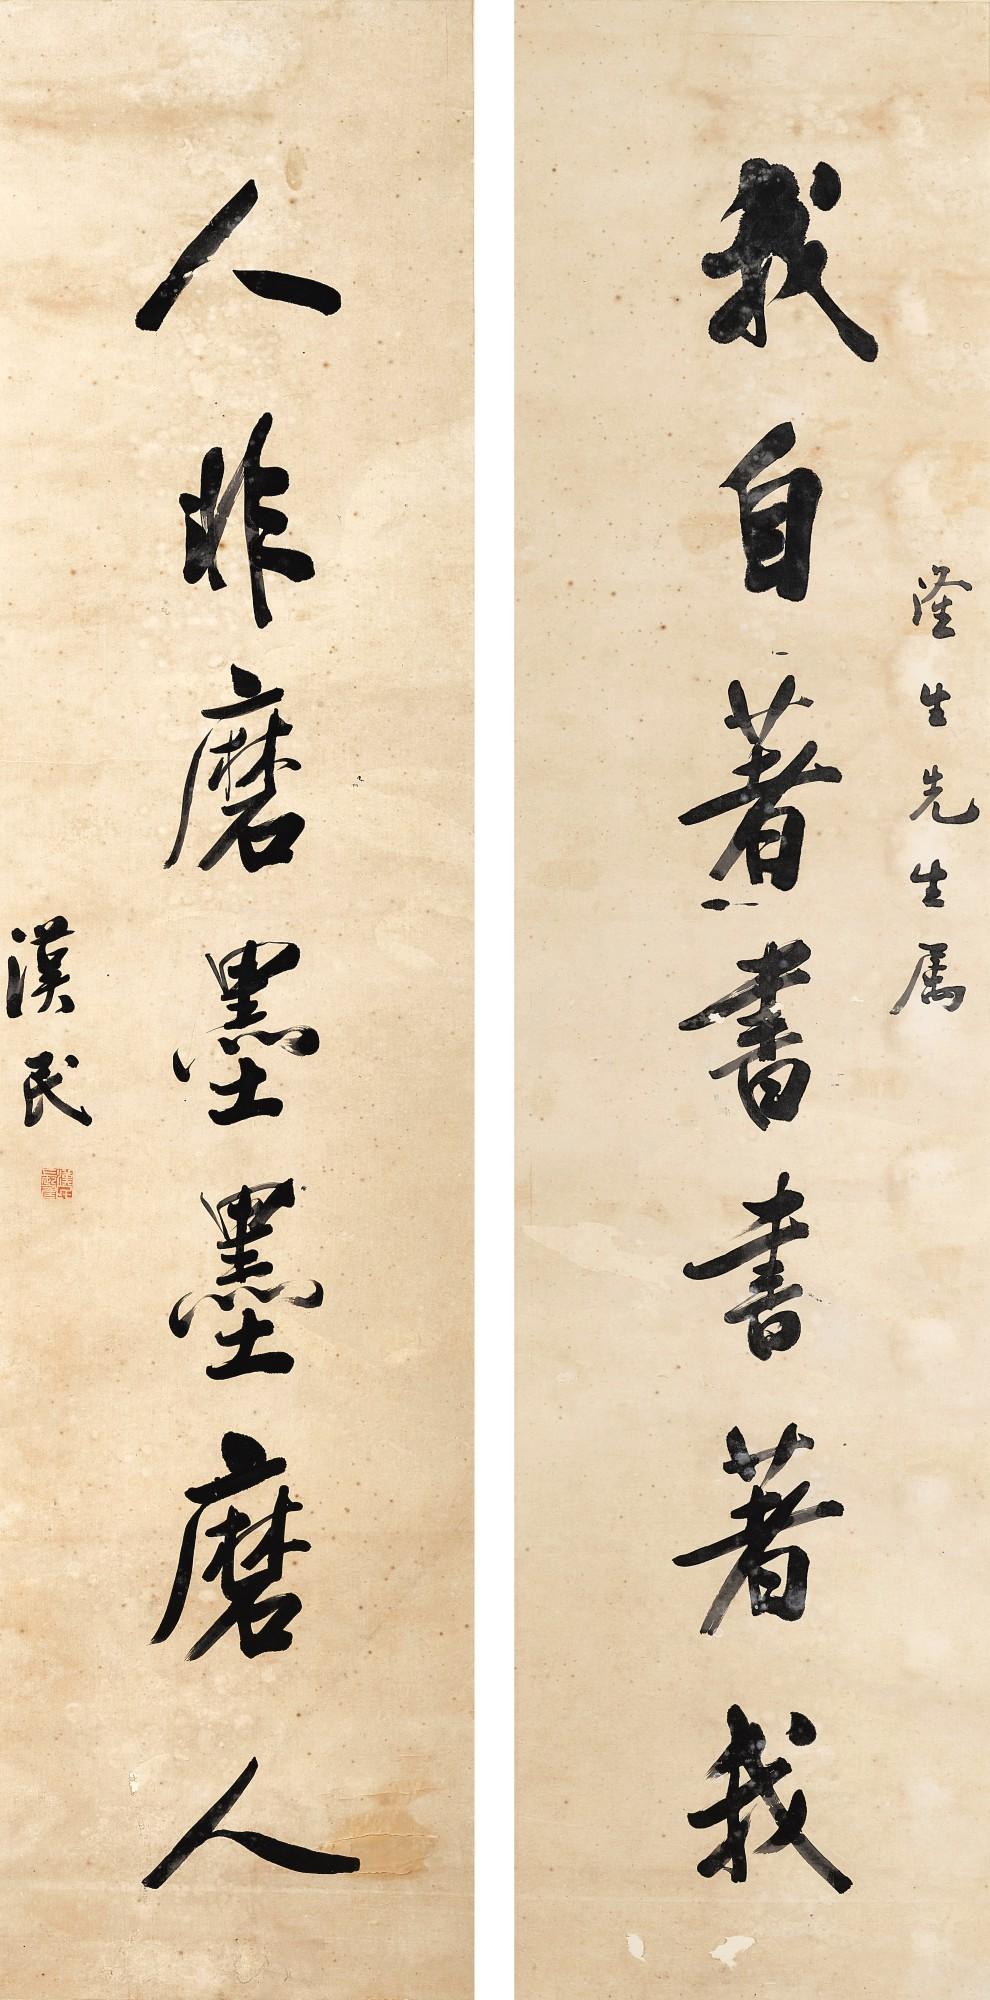 我自著書書著我
隆生先生属
人非磨墨墨磨人
漢民